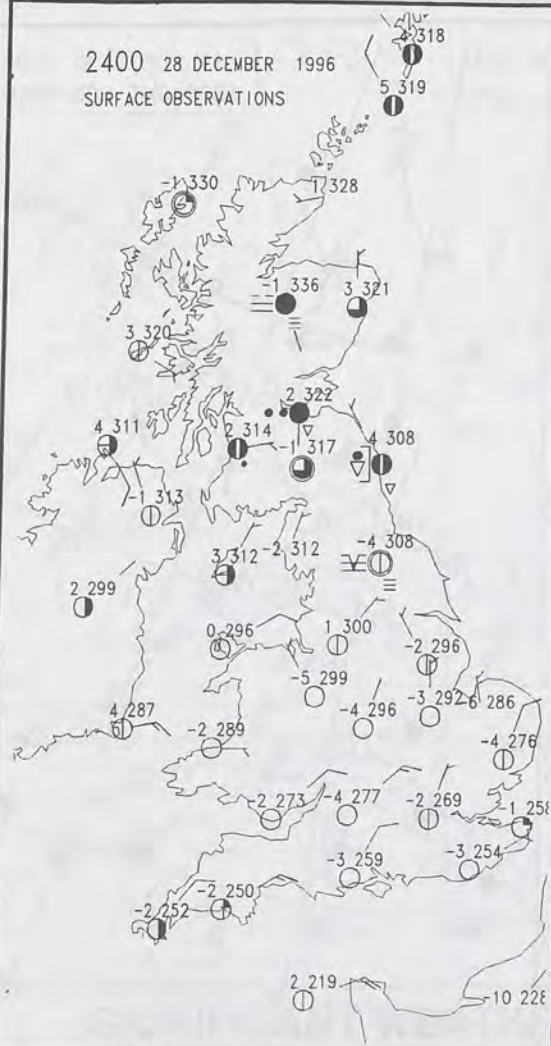 2400 28 DECEMBER 1996
SURFACE OBSERVATIONS
4 318
5 319
-1 330
1 328
-1 336
3 321
3 320
2 322
4 311
2 314
-1 317
4 308
-1 313
-2 312
-4 308
3 312
2 299
1 300
0 296
-2 296
-5 299
-3 292
-6 286
4 287
-4 296
-2 289
-4 276
-2 273
-4 277
-2 269
-1 258
-3 259
-3 254
-2 250
-2 252
2 219
-10 228